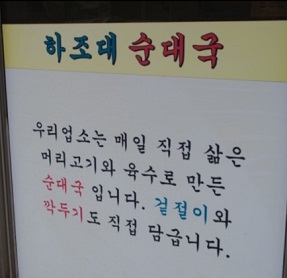 하조대 순대국
우리업소는 매일 직접 삶은
머리고기와 육수로 만든
순대국 입니다. 겉절이와
깍두기도 직접 담급니다.